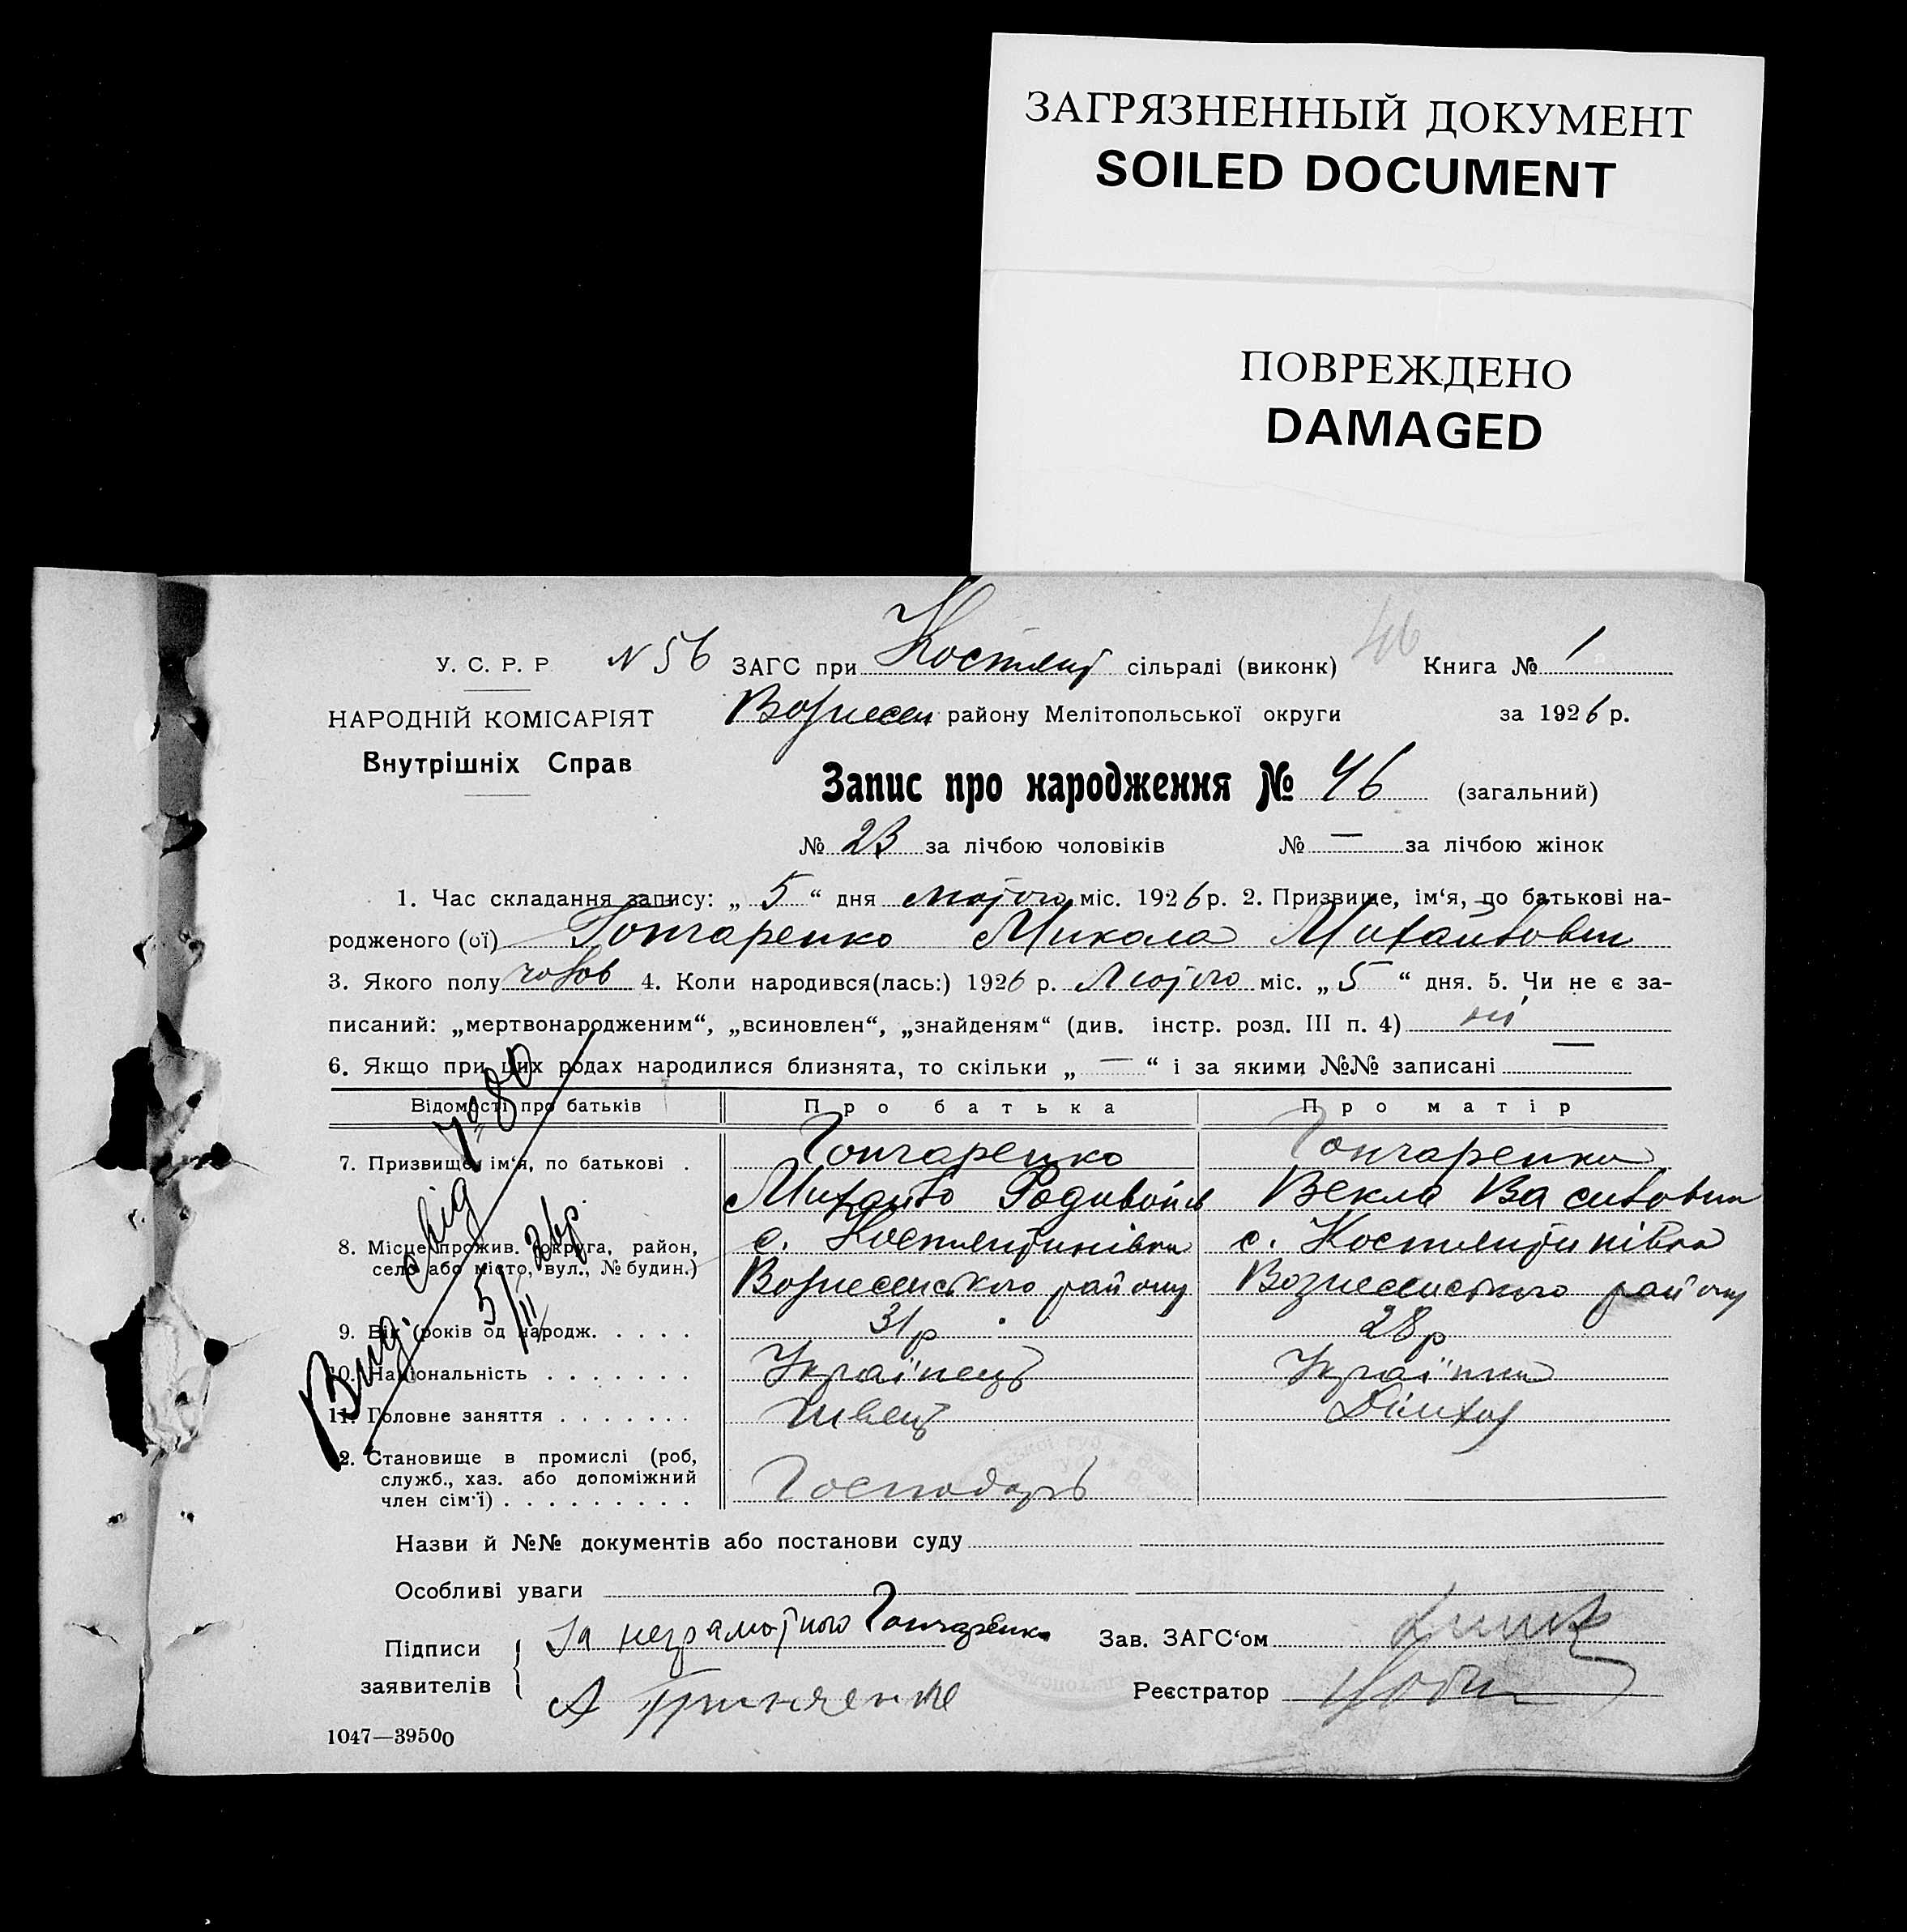 ЗАГРЯЗНЕННЫЙ ДОКУМЕНТ
SOILED DOCUMENT
ПОВРЕЖДЕНО
DAMAGED
У. С. Р. Р N 56 ЗАГС при Костянт сільраді (виконк) 46 Книга № 1
НАРОДНІЙ КОМІСАРІЯТ Вознесен району Мелітопольської округи за 1926 р.
Внутрішніх Справ
Запис про народження № 46 (загальний)
№ 23 за лічбою чоловіків № — за лічбою жінок
1. Час складання запису: „ 5 “ дня лютого міс. 1926 р. 2. Призвище, ім‘я, по батькові на-
родженого (ої) Гончаренко Микола Михайлович
3. Якого полу чолов 4. Коли народився(лась:) 1926 р. Лютого міс. „ 5 “ дня. 5. Чи не є за-
писаний: „мертвонародженим“, „всиновлен“, „знайденям“ (див. інстр. розд. III п. 4) ні
6. Якщо при цих родах народилися близнята, то скільки „ — “ і за якими №№ записані —
Відомості про батьків Про батька Про матір
7. Призвище, ім‘я, по батькові . Гончаренко Гончаренко
Михайло Родивонів Векла Василовна
8. Місце прожив. (округа, район, с. Костянтинівка с. Костянтинівка
село або місто, вул., № будин.) Вознесенського району Вознесенського району
9. Вік (років од народж. . . . . 31 р 28 р
10. Національність . . . . . . . Українець Українка
11. Головне заняття . . . . . . . Швець
12. Становище в промислі (роб,
служб., хаз. або допоміжний Господарь
член сім‘ї) . . . . . . . . .
Вид. свід
5/II 26р.
Назви й №№ документів або постанови суду
Особливі уваги
Підписи За неграмотного Гончаренка Зав. ЗАГС‘ом
заявителів А Гринченко Реєстратор
1047—39500